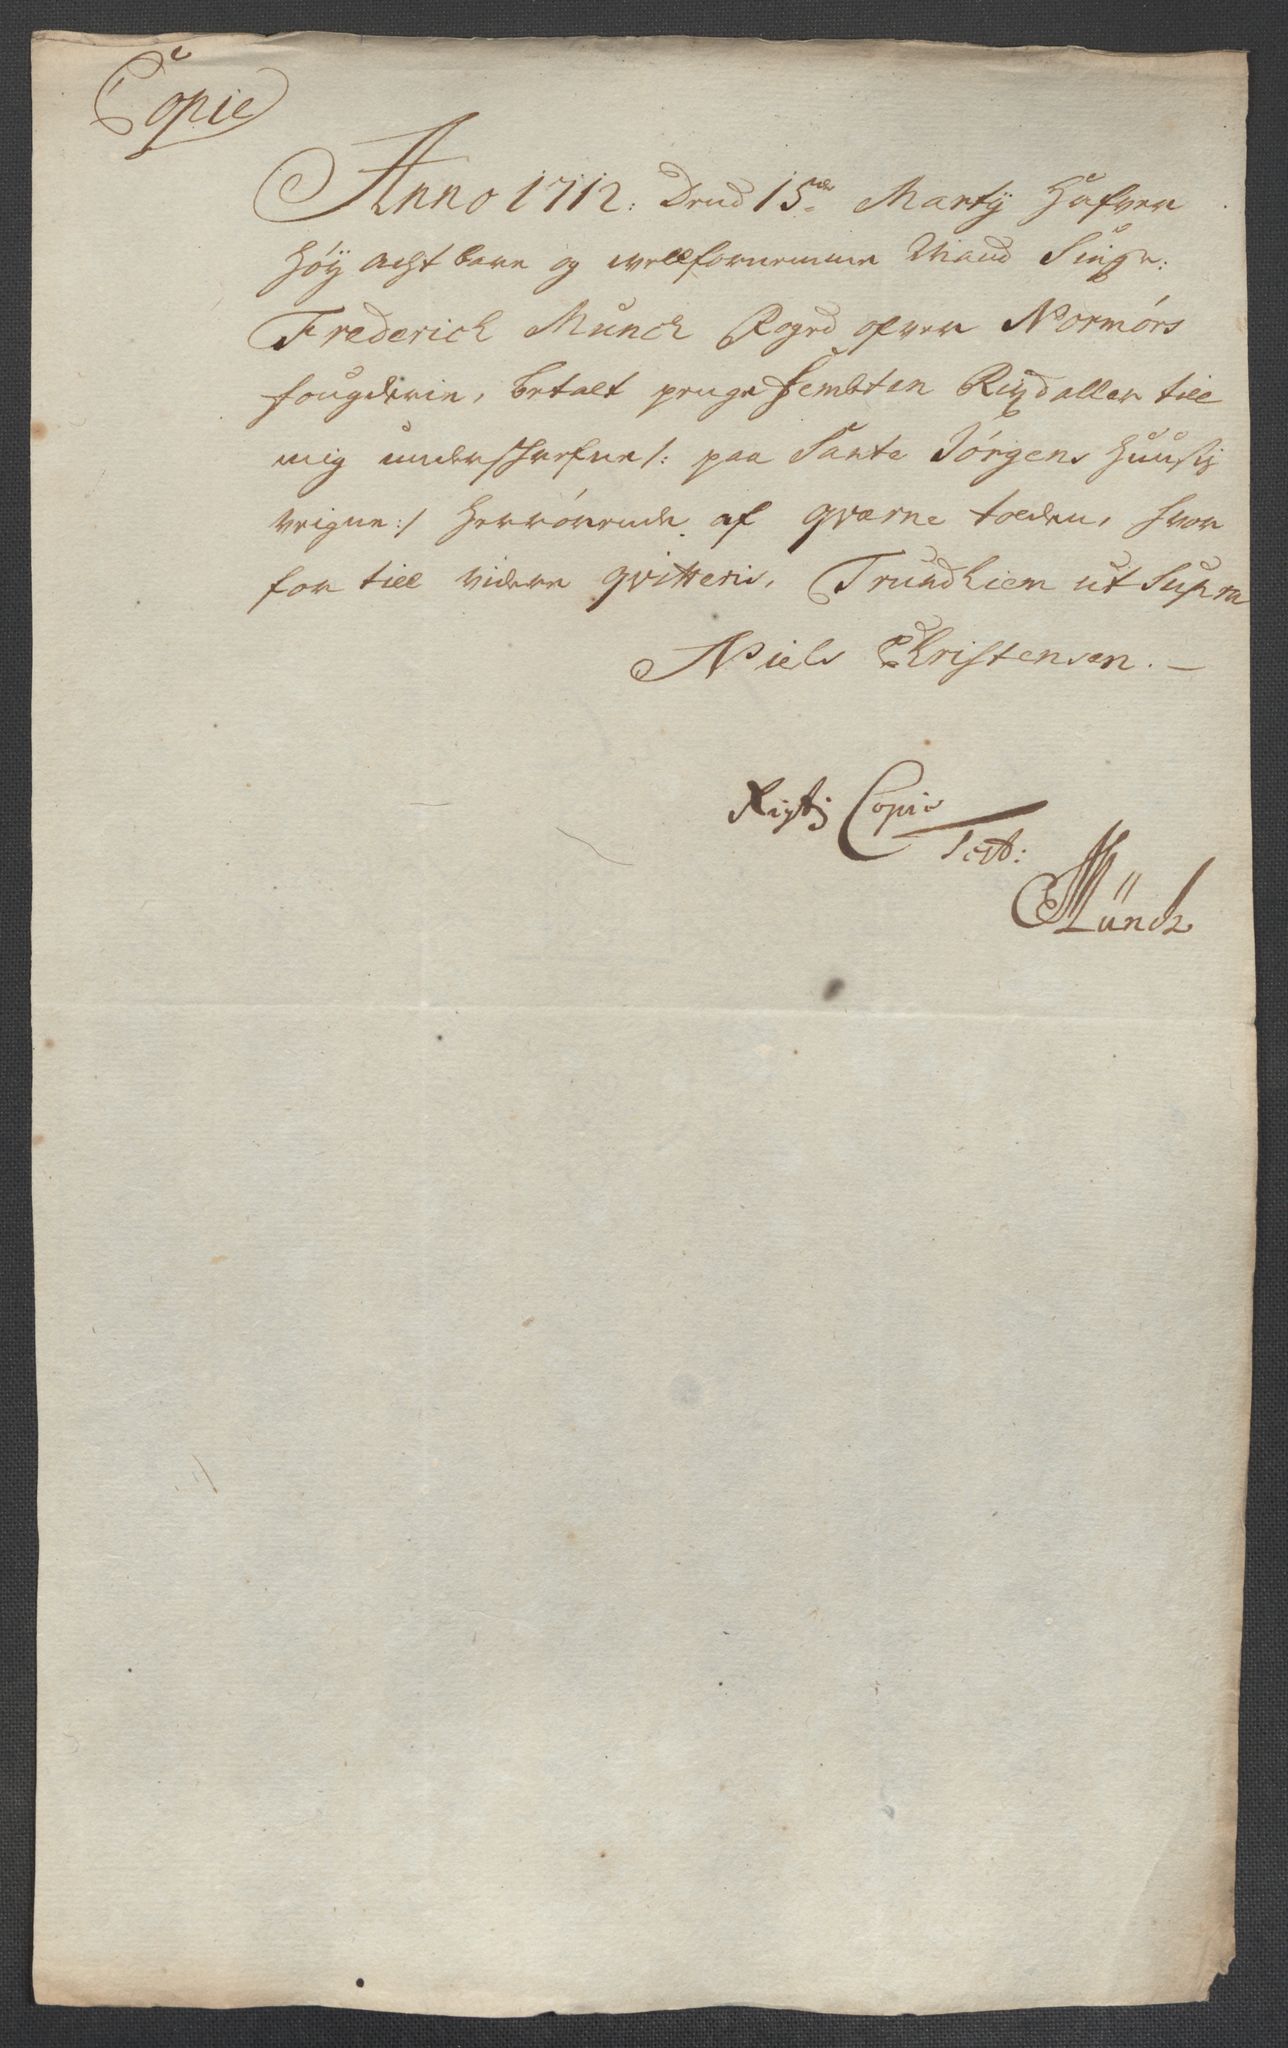 Copie
Anno 1712: Dend 15de Martij Hafver
Høy acht bare og wellfornemme Mand Singr:
Frederich Munch Foged ofver Normørs
fougderie, betalt penge Fembten Rixdaller till
mig underschrefne /: paa Sante Jørgens Huusis
veigne :/ Herrørende af qværne tolden, hvor
for till videre qvitteris, Trundhiem ut Supra
Niels Christensen.
Rigtig Copie
Test:
Münch